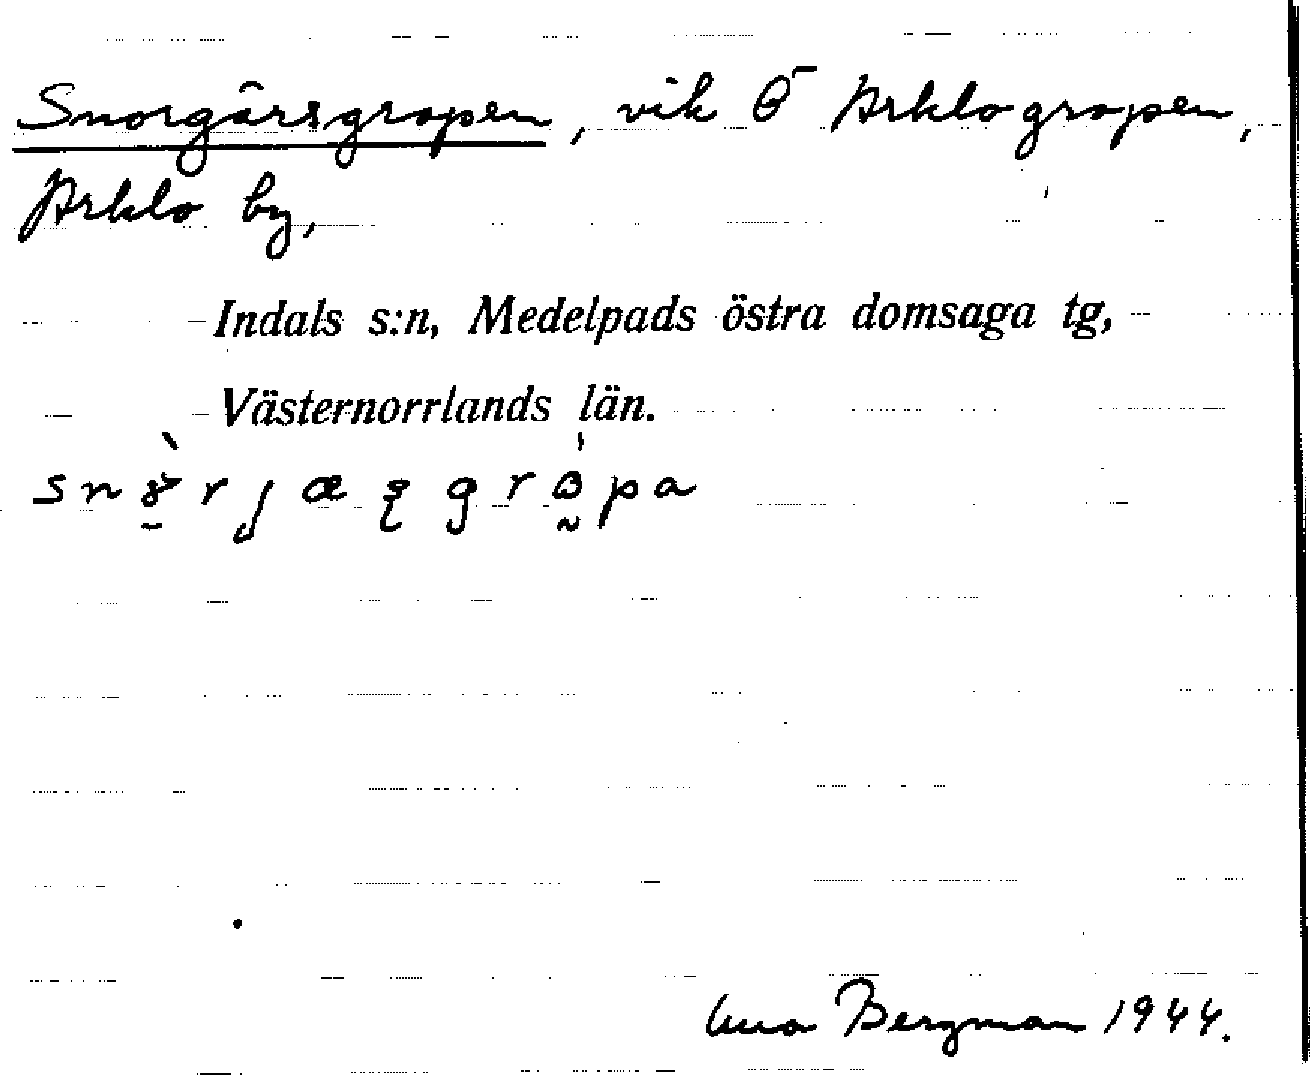 Snorgårsgropen, vik Ö Arklogropen,
Arklo by,
Indals s:n, Medelpads östra domsaga tg,
Västernorrlands län.
Bergman 1944.